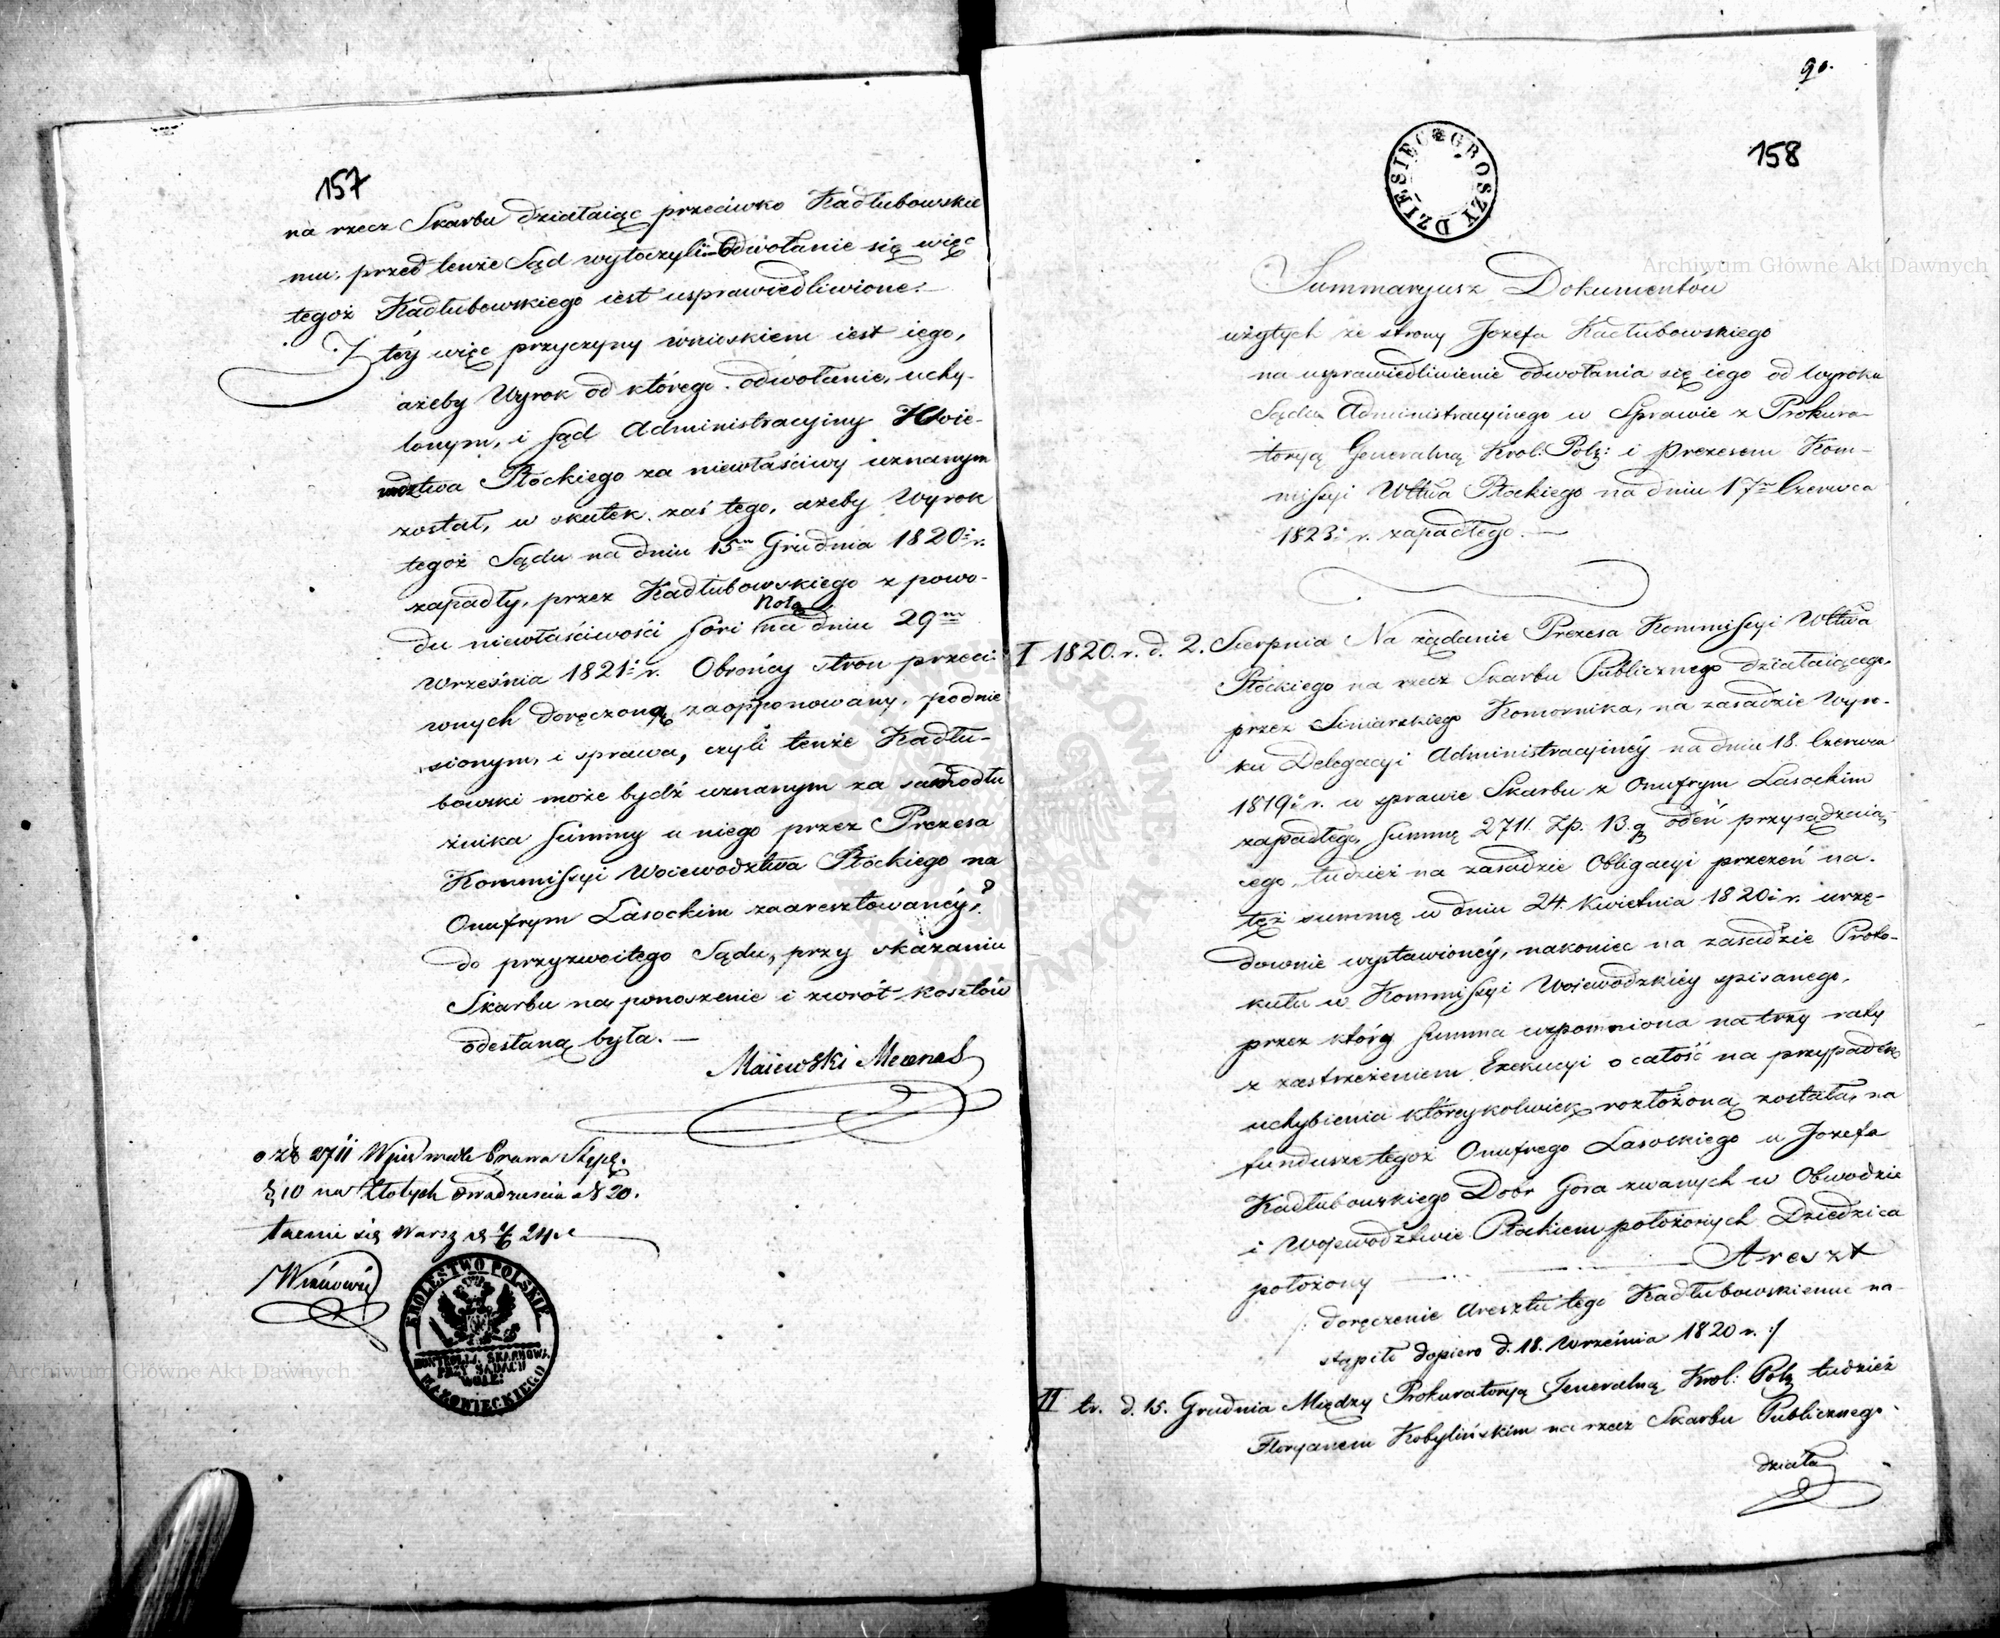 157
na rzecz Skarbu działaiąc przeciwko Kadłubowskie
mu, przed tenże Sąd wytoczyli. Odwołanie się więc
tegoż Kadłubowskiego iest usprawiedliwione.
Z téy więc przyczyny wnioskiem iest iego,
ażeby Wyrok od którego odwołanie, uchy-
lonym, i Sąd Administracyiny Woie-
wodztwa Płockiego za niewłaściwy uznanym
został, w skutek zaś tego, ażeby Wyrok
tegoż Sądu na dniu 15m Grudnia 1820: r.
zapadły, przez Kadłubowskiego z powo-
du niewłaściwości fori Notą na dniu 29m
Września 1821: r. Obrońcy stron przeci-
wnych doręczoną zaopponowany, podnie
sionym, i sprawa, czyli tenże Kadłu-
bowski może bydź uznanym za samodłu
żnika Summy u niego przez Prezesa
Kommissyi Woiewodztwa Płockiego na
Onufrym Lasockim zaaresztowanéy?
do przyzwoitego Sądu, przy skazaniu
Skarbu na ponoszenie i zwrót kosztów
odesłaną była. —
Maiewski Mecenas
o zł 2711
§ 10 na Złotych dwadzieścia zł 20.
KRÓLESTWO POLSKIE
KONTROLLA SKARBOWA
PRZY SĄDACH
WOIE:
MAZOWIECKIEGO
90.
158
DZIESIĘC GROSZY
Summaryusz Dokumentów
użytych ze strony Jozefa Kadłubowskiego
na usprawiedliwienie odwołania się iego od Wyroku
Sądu Administracyinego w Sprawie z Prokura-
toryą Generalną Krol: Pols: i Prezesem Kom-
missyi Wttwa Płockiego na dniu 17m Czerwca
1823: r. zapadłego. —
I 1820. r. d. 2. Sierpnia Na żądanie Prezesa Kommissyi Wttwa
Płockiego na rzecz Skarbu Publicznego działaiącego,
przez Siniarskiego Komornika, na zasadzie Wyro-
ku Delegacyi Administracyinéy na dniu 18. Czerwca
1819: r. w sprawie Skarbu z Onufrym Lasockim
zapadłego, Summę 2711. Zp. 13. g odeń przysądzaią-
cego, tudzież na zasadzie Obligacyi przezeń na
tęż summę w dniu 24. Kwietnia 1820: r. urzę-
downie wystawionéy, nakoniec na zasadzie Proto-
kułu w Kommissyi Woiewódzkiéy spisanego,
przez który Summa wzpomniona na trzy raty
z zastrzeżeniem Exekucyi o całość na przypadek
uchybienia któreykolwiek rozłożoną została, na
fundusze tegoż Onufrego Lasockiego u Jozefa
Kadłubowskiego Dobr Góra zwanych w Obwodzie
i Wojewodztwie Płockiem położonych Dziedzica
położony — Areszt
/: doręczenie Aresztu tego Kadłubowskiemu na-
stąpiło dopiero d. 18. Września 1820 r. :/
II tr. d. 15. Grudnia Między Prokuratoryą Jeneralną Krol: Pols tudzież
Floryanem Kobylińskim na rzecz Skarbu Publicznego
działa
Archiwum Główne Akt Dawnych
Archiwum Główne Akt Dawnych